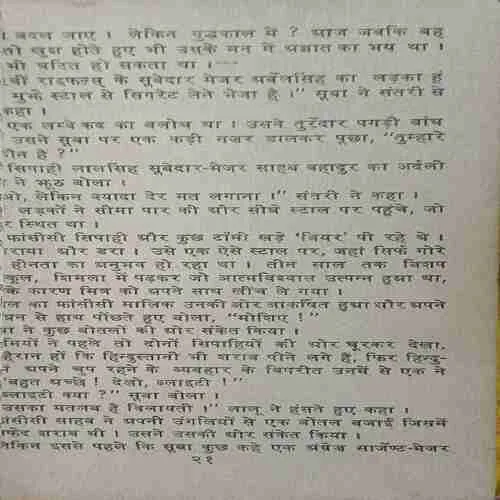 । बदल जाए । लेकिन युद्धकाल में ? आज जबकि वह
तो खुश होते हुए भी उसके मन में अज्ञात का भय था ।
भी घटित हो सकता था ।
वीं राइफल्स के सूबेदार मेजर अर्बेलसिंह का लड़का हूं
मुझे स्टाल से सिगरेट लेने भेजा है ।” सूबा ने संतरी से
कहा ।
एक लम्बे कद का बलोच था । उसने तुर्रेदार पगड़ी बांध
उसने सूबा पर एक कड़ी नज़र डालकर पूछा, “तुम्हारे
कौन है ?”
सिपाही लालसिंह सूबेदार-मेजर साहब बहादुर का अर्दली
ने झूठ बोला ।
ओ, लेकिन ज्यादा देर मत लगाना ।” संतरी ने कहा ।
लड़कों ने सीमा पार की और सीधे स्टाल पर पहुंचे, जो
र स्थित था ।
फ्रांसीसी सिपाही और कुछ टॉमी खड़े ‘बियर’ पी रहे थे ।
राया और डरा । उसे एक ऐसे स्टाल पर, जहां सिर्फ गोरे
हीनता का अनुभव हो रहा था । तीन साल तक बिशप
स्कूल, शिमला में पढ़कर जो आत्मविश्वास उत्पन्न हुआ था,
के कारण मित्र को अपने साथ खींच ले गया ।
ाल का फ्रांसीसी मालिक उनकी ओर आकर्षित हुआ और अपने
प्रन से हाथ पोंछते हुए बोला, “मोशिए !”
बा ने कुछ बोतलों की ओर संकेत किया ।
मियों ने पहले तो दोनों सिपाहियों की ओर घूरकर देखा,
हैरान हों कि हिन्दुस्तानी भी शराब पीने लगे हैं, फिर हिन्दु-
अपने चुप रहने के व्यवहार के विपरीत उनमें से एक ने
“बहुत अच्छे ! देखो, ब्लाइटी !”
ब्लाइटी क्या ?” सूबा बोला ।
उसका मतलब है विलायती ।” लालू ने हंसते हुए कहा ।
फ्रांसीसी साहब ने अपनी उंगलियों से एक बोतल बजाई जिसमें
सफेद शराब थी । उसने उसकी ओर संकेत किया ।
लेकिन इससे पहले कि सूबा कुछ कहे एक अंग्रेज सार्जेण्ट-मेजर
२१